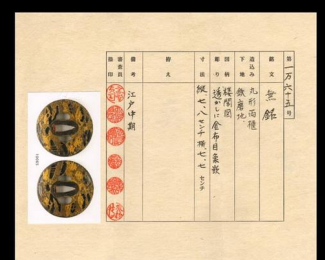 第一万六十五号
銘文 無銘
造込み 丸形両櫃
下地 鉄磨地
図柄 楼閣図
彫り 透かしに金布目象嵌
寸法 縦七、八センチ 横七、七センチ
拵え
備考 江戸中期
審査員